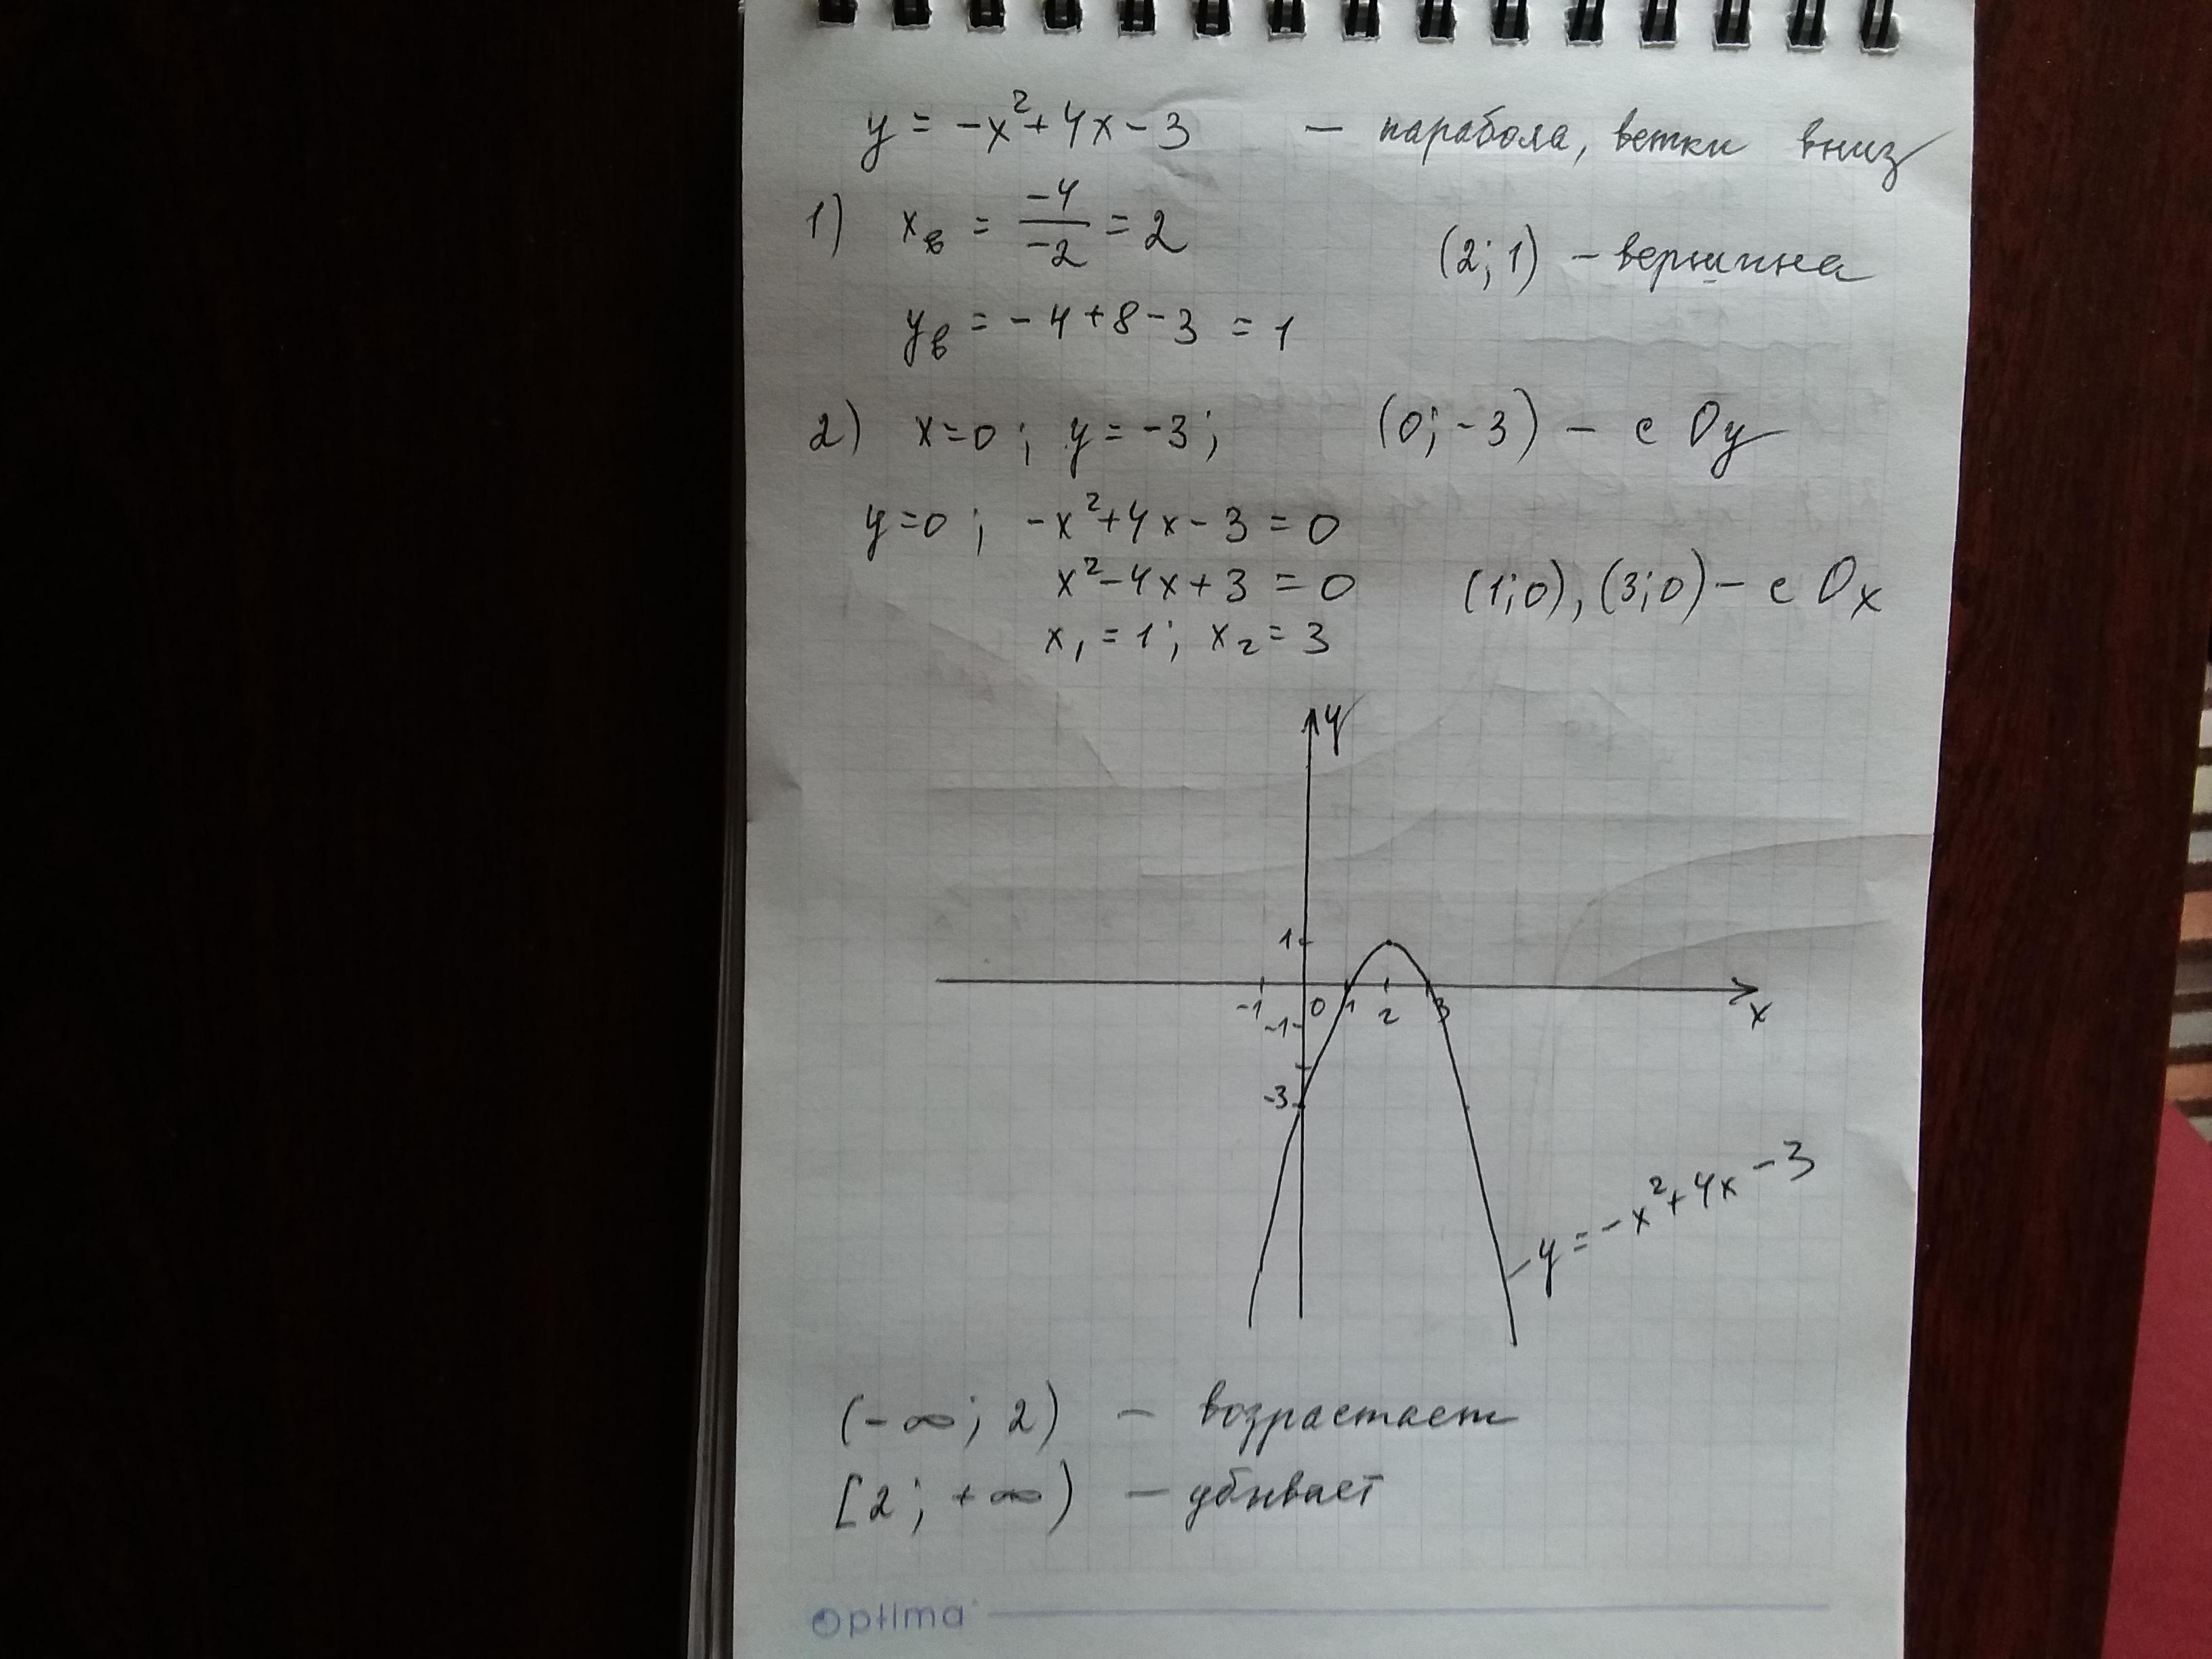 y = -x²+4x-3 — парабола, ветки вниз
1) xв = -4/-2 = 2 (2; 1) - вершина
yв = -4+8-3 = 1
2) x=0; y=-3; (0; -3) - с Oy
y=0; -x²+4x-3=0
x²-4x+3=0 (1;0), (3;0) - с Ox
x₁=1; x₂=3
y
1
-1 0 1 2 3 x
-1
-3
y=-x²+4x-3
(-∞; 2) - возрастает
[2; +∞) - убывает
Optima